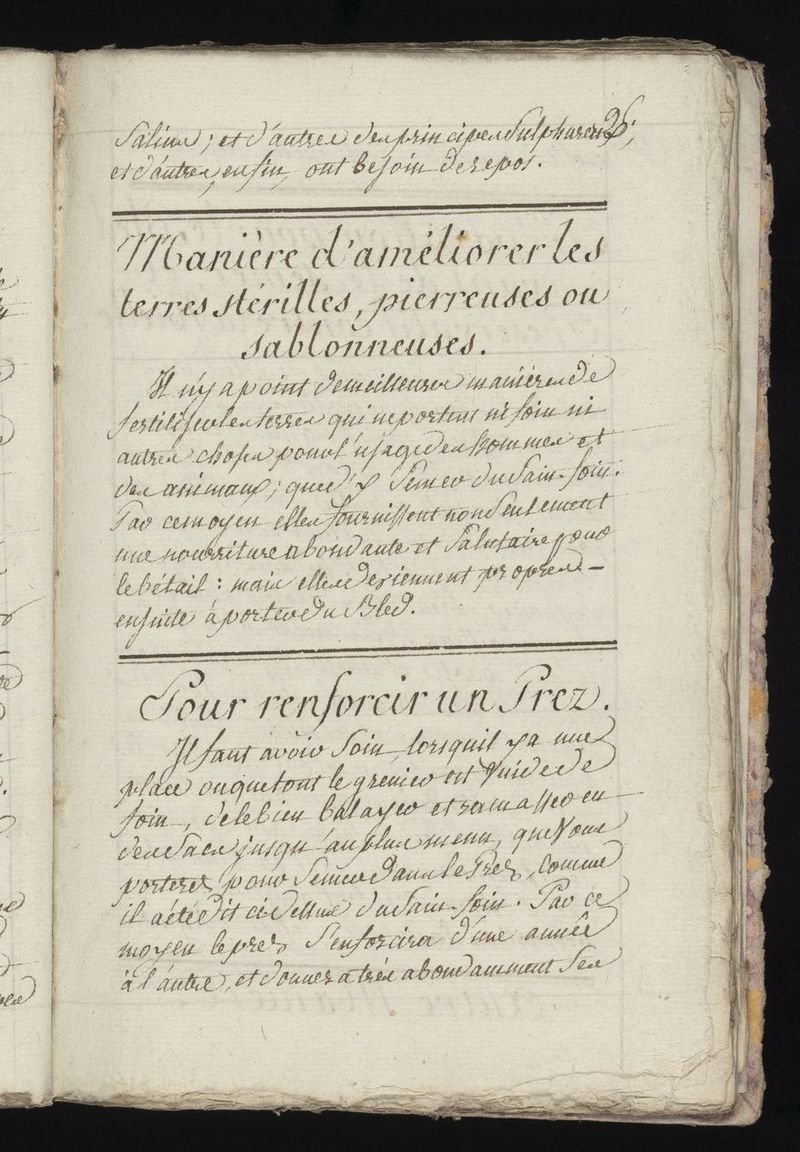 Salins ; et d'autres des principes Sulphureux ;
et d'autres, enfin, ont besoin de repos.
Manière d'améliorer les
terres stérilles, pierreuses ou
sablonneuses.
Il n'y a point de meilleures manières de
fertiliser les terres qui ne portent ni foin ni
autres choses pour l'usage des hommes et
des animaux ; que d'y Semer du Sain-foin.
Par ce moyen elles fournissent non Seulement
une nourriture abondante et Salutaire pour
le bétail : mais elles deviennent propres
ensuite à porter du Bled.
Pour renforcir un Prez.
Il faut avoir Soin, lorsquil y a une
place ou que tout le grenier est Vuide de
foin, de le bien balayer et ramasser en
des Sacs jusqu'au plus menu, que Vous
porterez pour Semer dans le Prez, comme
il a été dit ci dessus du Sain-foin. Par ce
moyen le prez S'enforcira d'une année
à l'autre, et donnera très abondamment Ses